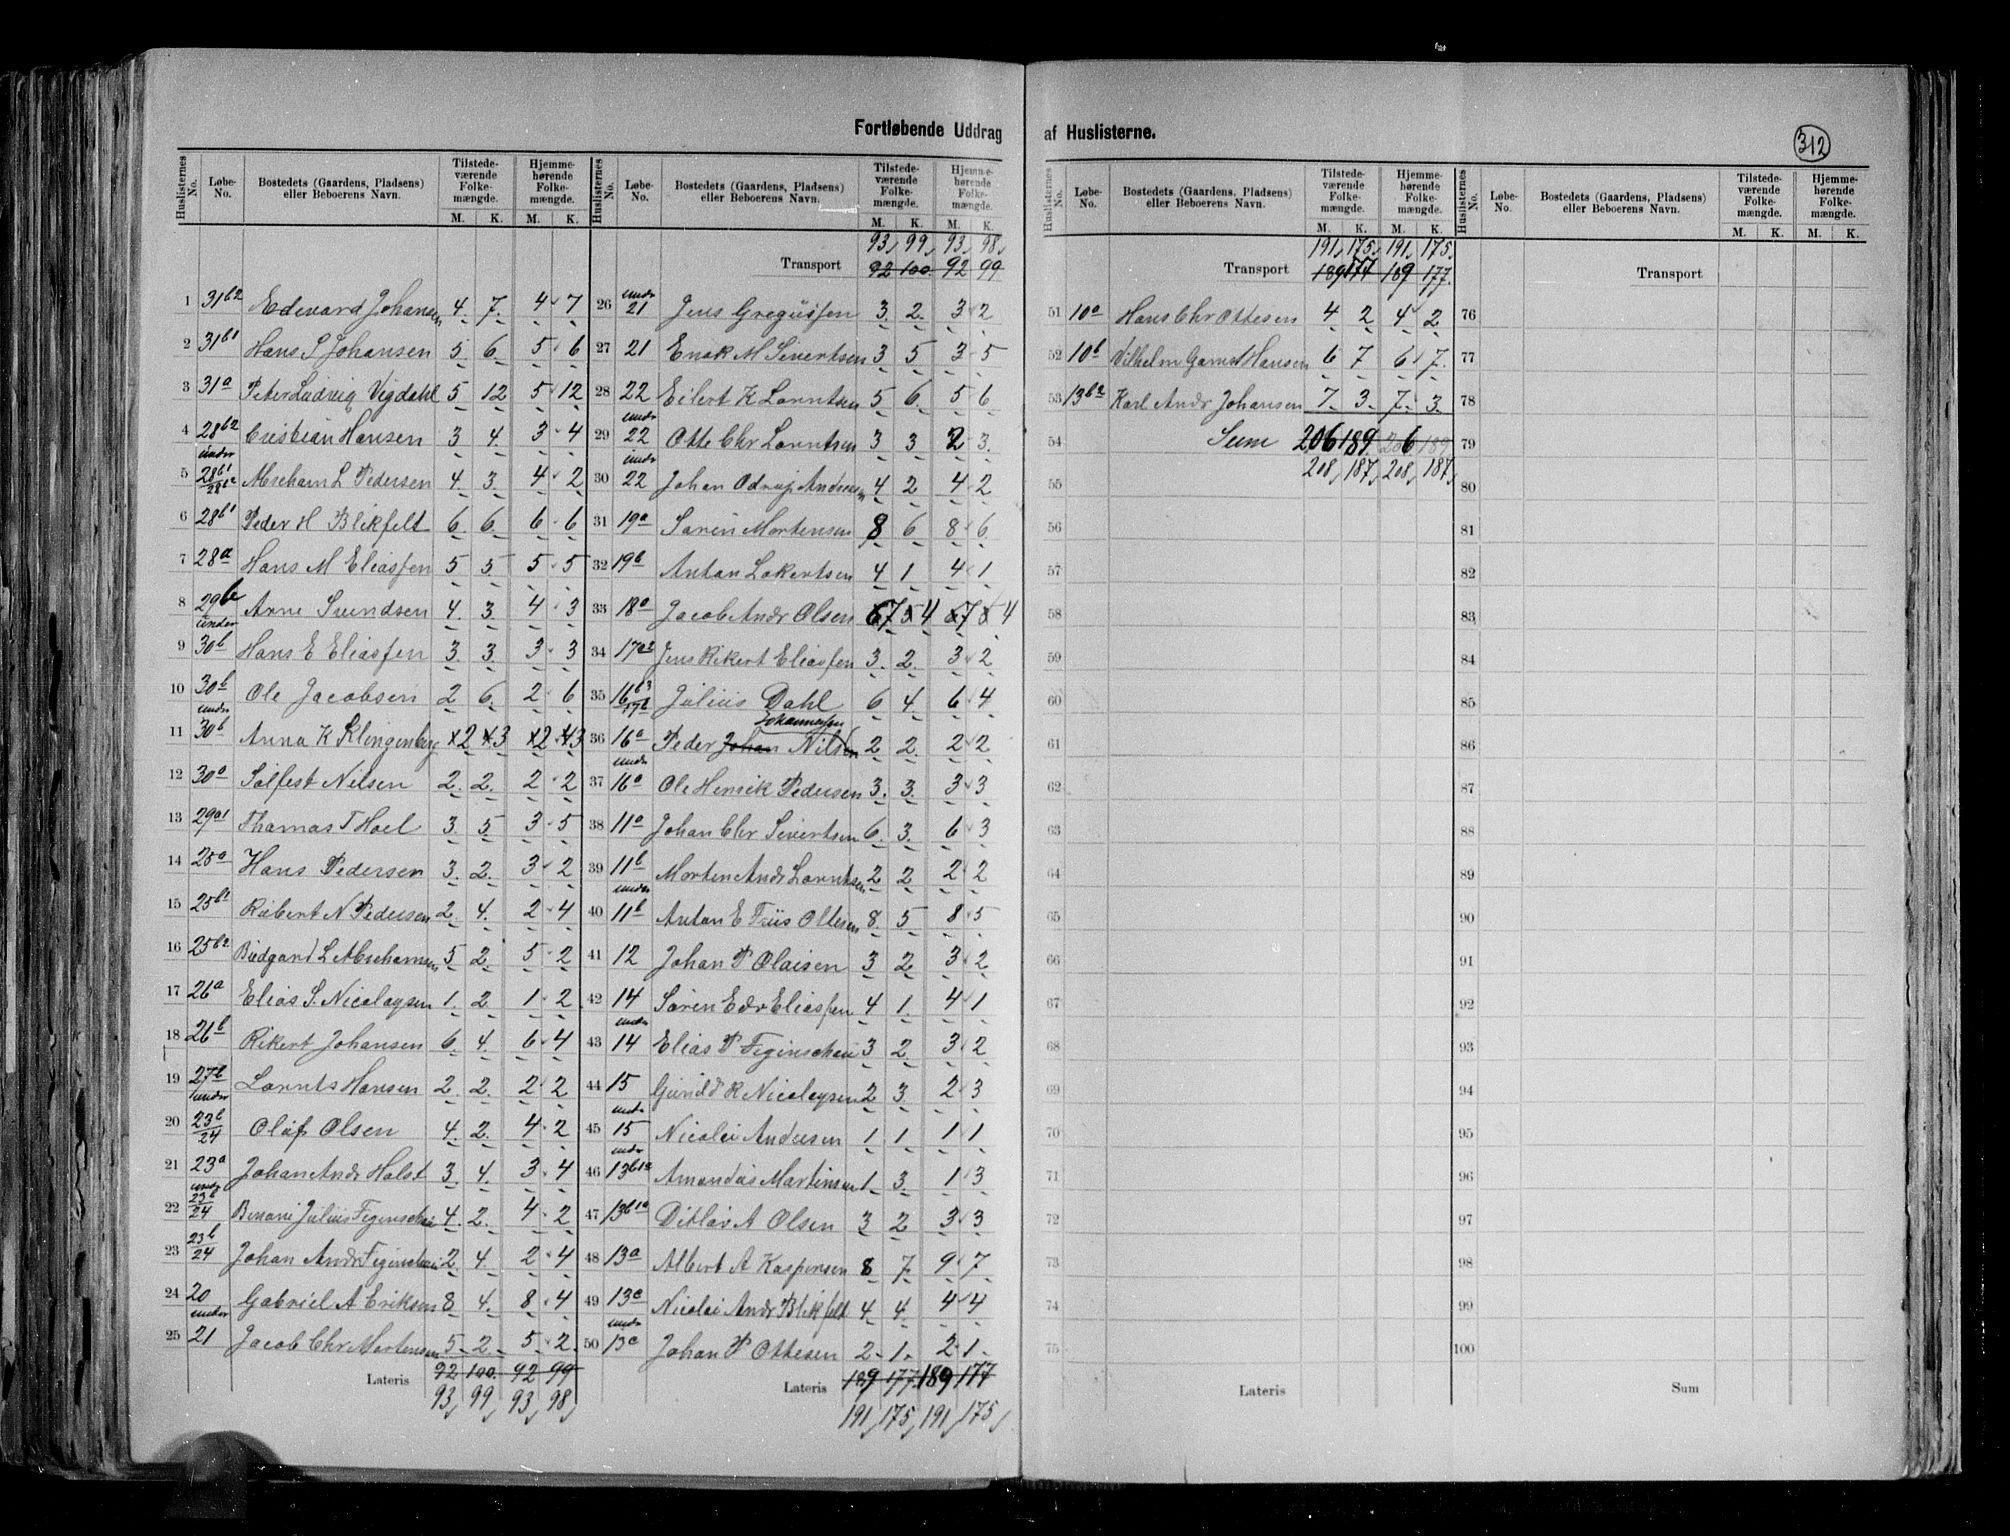 Fortløbende Uddrag af Huslisterne.
312
Huslisternes No. Løbe-No. Bostedets (Gaardens, Pladsens) eller Beboerens Navn. Tilstedeværende Folkemængde. M. K. Hjemmehørende Folkemængde. M. K.
1 31b2 Edevard Johansen 4 7 4 7
2 31b1 Hans S Johansen 5 6 5 6
3 31a Peter Ludvig Vigdahl 5 12 5 12
4 28b2 Cristian Hansen 3 4 3 4
5 under 28b1 Abraham L Pedersen 4 3 4 2
6 28b1 Peder H Blikfelt 6 6 6 6
7 28a Hans M Eliasfen 5 5 5 5
8 29b Arne Svendsen 4 3 4 3
9 under 30b Hans E Eliasfen 3 3 3 3
10 30b Ole Jacobsen 2 6 2 6
11 under 30b Anna K Klingenberg 2 3 2 3
12 30a Salfest Nilsen 2 2 2 2
13 29a1 Thomas T Hoel 3 5 3 5
14 25a Hans Pedersen 3 2 3 2
15 25b1 Robert N Pedersen 2 4 2 4
16 25b2 L Abrahamsen 5 2 5 2
17 26a Elias S. Nicolaysen 1 2 1 2
18 26b Rikert Johansen 6 4 6 4
19 27b Lornts Hansen 2 2 2 2
20 under 23b/24 Olaf Olsen 4 2 4 2
21 23a Johan Andr Holst 3 4 3 4
22 under 23b/24 Benoni Julius Figenschau 4 2 4 2
23 23b/24 Johan Andr Figenschau 2 4 2 4
24 20 Gabriel A Eriksen 8 4 8 4
25 under 21 Jacob Chr Mortensen 5 2 5 2
Lateris 92 100 92 99
93 99 93 98
Huslisternes No. Løbe-No. Bostedets (Gaardens, Pladsens) eller Beboerens Navn. Tilstedeværende Folkemængde. M. K. Hjemmehørende Folkemængde. M. K.
93 99 93 98
Transport 92 100 92 99
26 under 21 Jens Gregusfen 3 2 3 2
27 21 Enok M Sivertsen 3 5 3 5
28 22 Eilert K Lorntsen 5 6 5 6
29 under 22 Otte Chr Lorntsen 3 3 2 3
30 under 22 Johan Andreasen 4 2 4 2
31 19a Søren Mortensen 8 6 8 6
32 19b Anton Lokertsen 4 1 4 1
33 18a Jacob Andr Olsen 7 4 7 4
34 17a2 Jens Rikert Eliasfen 3 2 3 2
35 16b3 Julius Dahl 6 4 6 4
36 16a Peder Johan Johannesfen Nilsen 2 2 2 2
37 under 16a Ole Henrik Pedersen 3 3 3 3
38 11a Johan Chr Sivertsen 6 3 6 3
39 11b Morten Andr Lorntsen 2 2 2 2
40 under 11b Anton E Friis Ottesen 8 5 8 5
41 12 Johan P Olaisen 3 2 3 2
42 14 Søren Edv Eliasfen 4 1 4 1
43 under 14 Elias P Figenschau 3 2 3 2
44 15 R Nicolaysen 2 3 2 3
45 under 15 Nicolai Andersen 1 1 1 1
46 under 13b1a Amandus Martinsen 1 3 1 3
47 13b1a Ditlev A Olsen 3 2 3 3
48 13a Albert A Kaspersen 8 7 9 7
49 13c Nicolai Andr Blikfelt 4 4 4 4
50 under 13c Johan P Ottesen 2 1 2 1
Lateris 189 177 189 177
191 175 191 175
Huslisternes No. Løbe-No. Bostedets (Gaardens, Pladsens) eller Beboerens Navn. Tilstedeværende Folkemængde. M. K. Hjemmehørende Folkemængde. M. K.
191 175 191 175
Transport 189 177 189 177
51 10a Hans Chr Ottesen 4 2 4 2
52 10b Vilhelm Hansen 6 7 6 7
53 13b2 Karl Andr Johansen 7 3 7 3
54 Sum 206 189 206 189
208 187 208 187
55
56
57
58
59
60
61
62
63
64
65
66
67
68
69
70
71
72
73
74
75
Lateris
Huslisternes No. Løbe-No. Bostedets (Gaardens, Pladsens) eller Beboerens Navn. Tilstedeværende Folkemængde. M. K. Hjemmehørende Folkemængde. M. K.
Transport
76
77
78
79
80
81
82
83
84
85
86
87
88
89
90
91
92
93
94
95
96
97
98
99
100
Sum